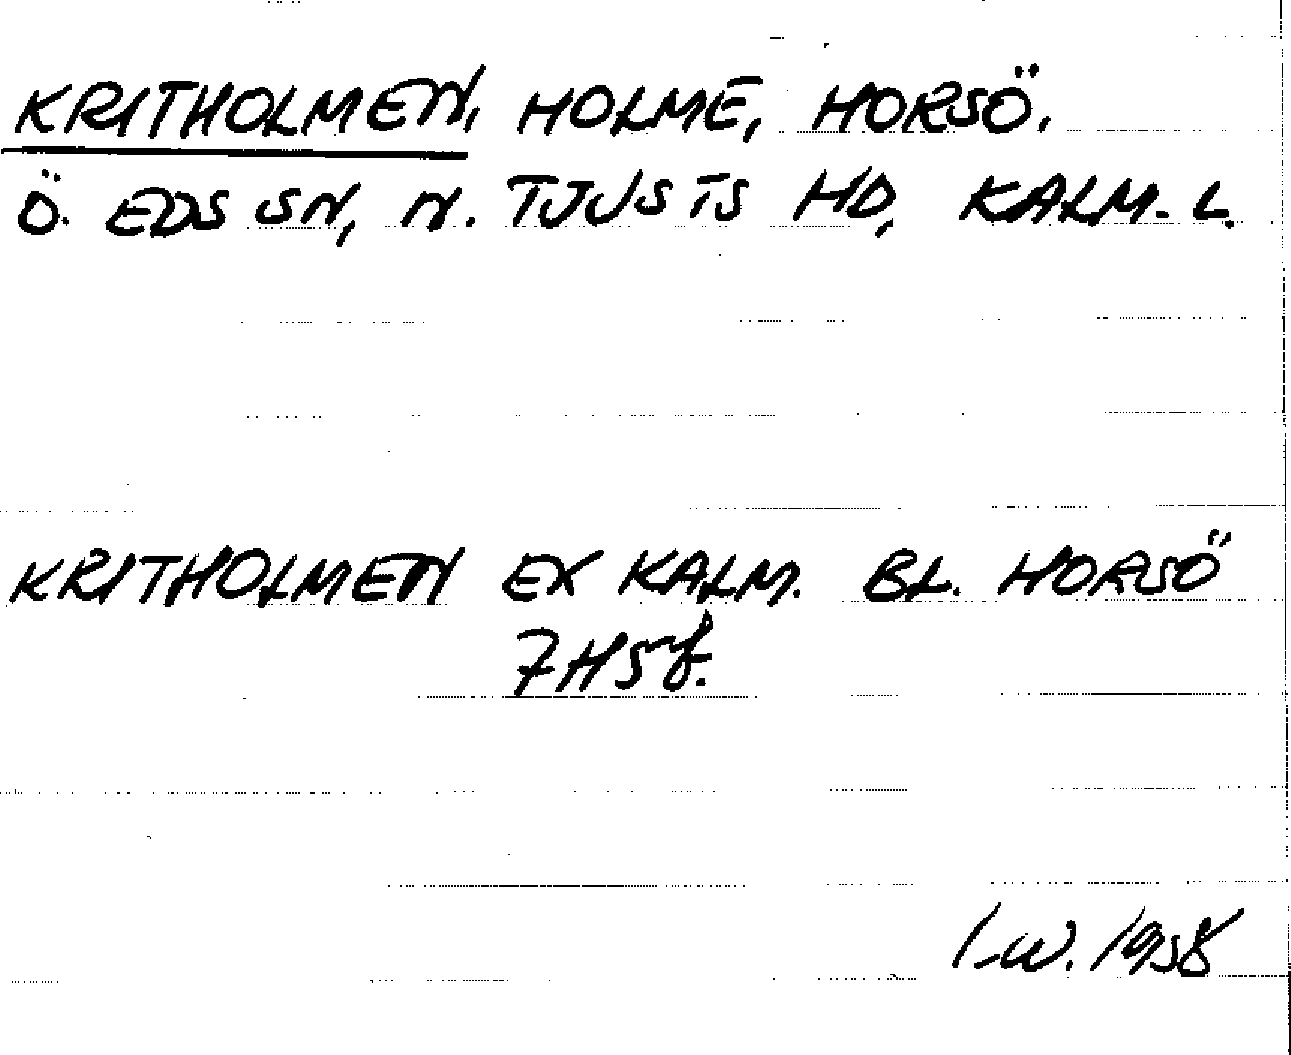 KRITHOLMEN, HOLME, HORSÖ,
Ö. EDS SN, N. TJUSTS HD, KALM. L.
KRITHOLMEN EX KALM. BL. HORSÖ
7H5f.
I-W. 1958